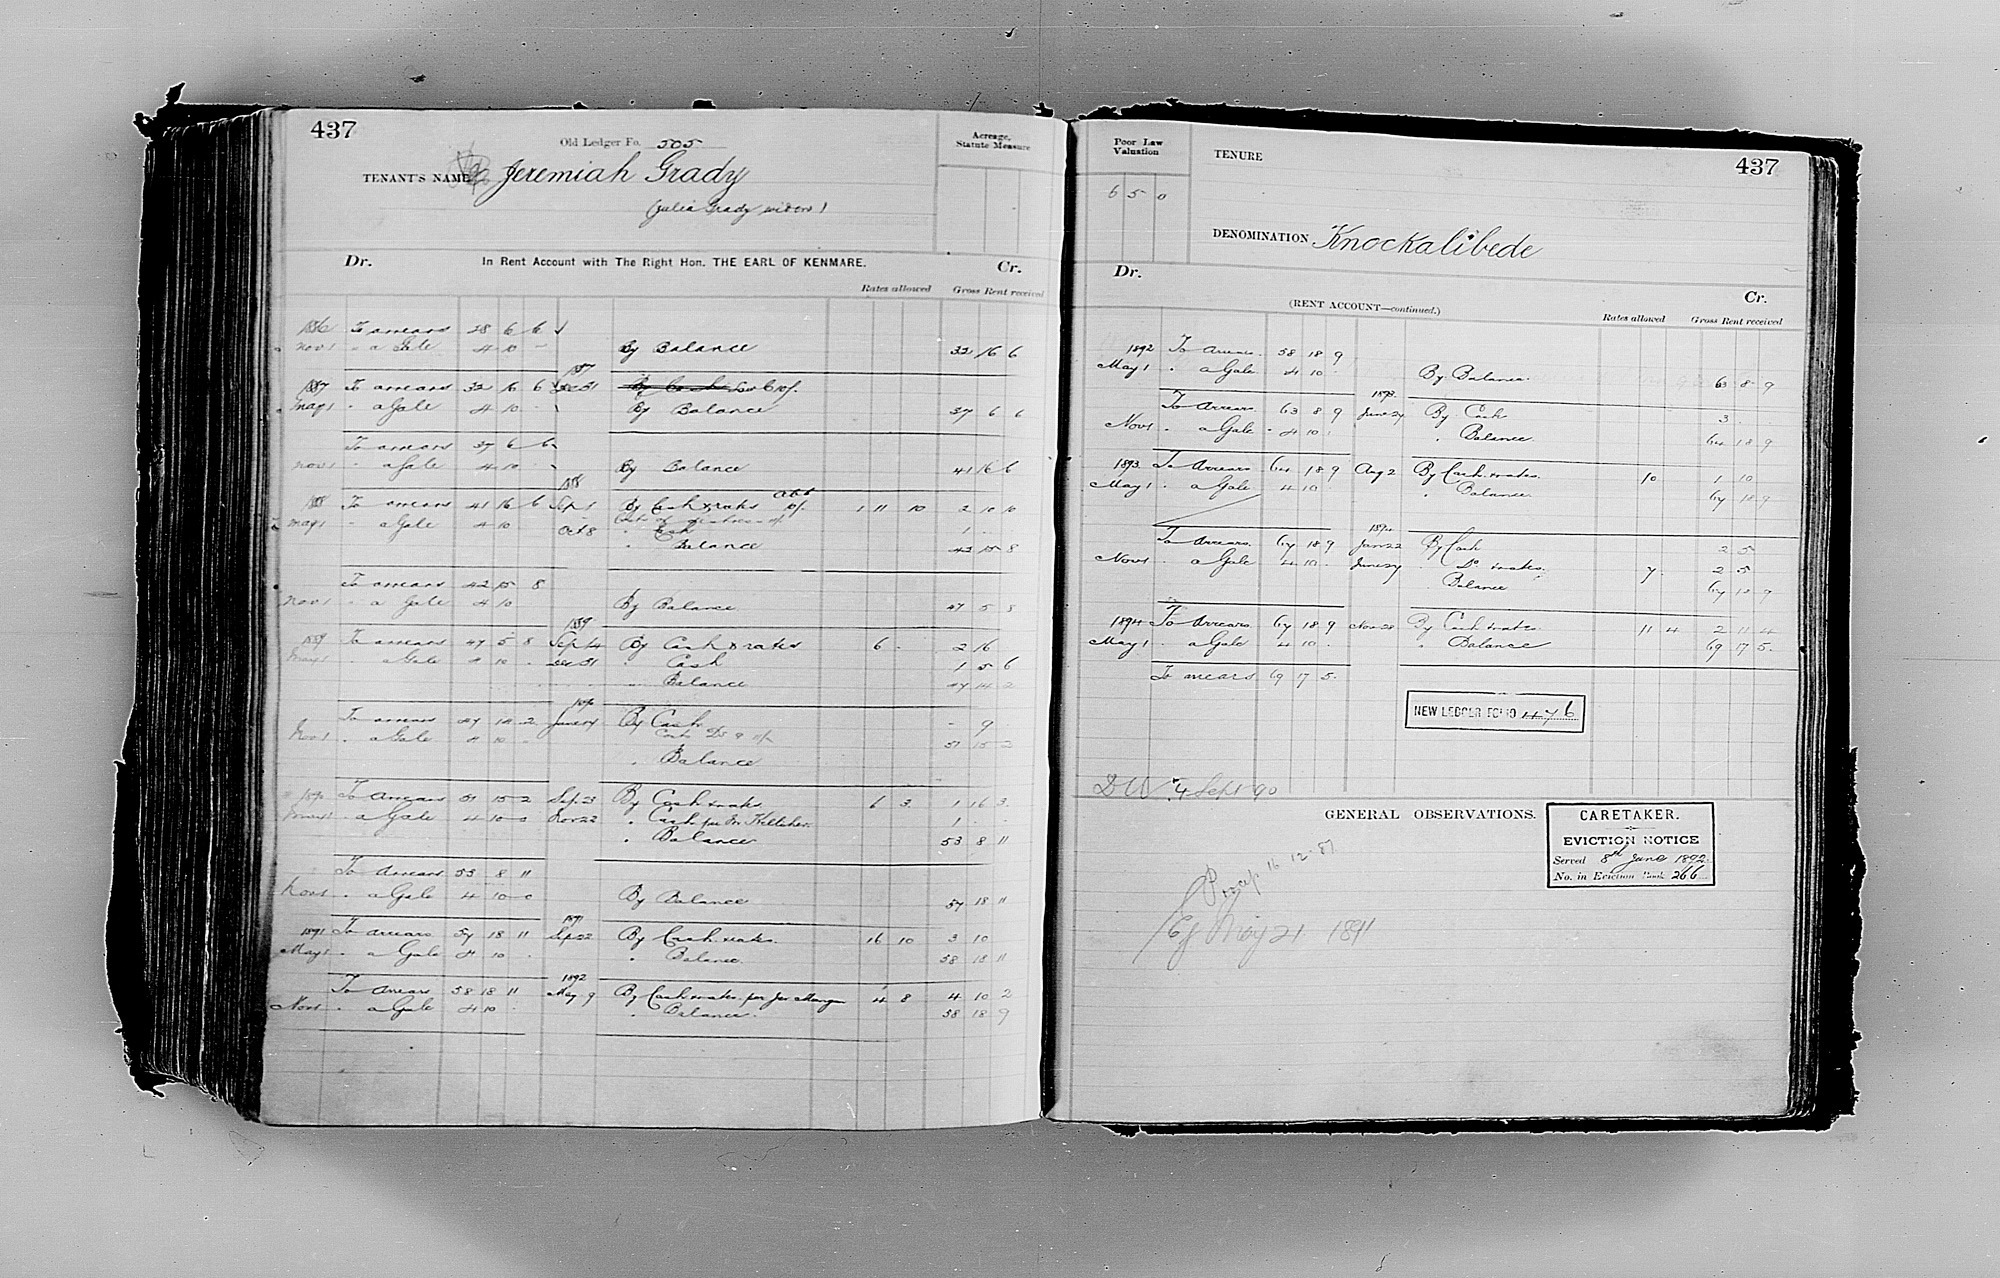 437
Old Ledger Fo. 505
Acreage, Statute Measure
TENANT'S NAME Jeremiah Grady
(Julia Grady widow)
Dr. In Rent Account with The Right Hon. THE EARL OF KENMARE. Cr.
Rates allowed Gross Rent received
1886 To arrears 28 6 6
Nov 1 " a Gale 4 10 - By Balance 32 16 6
1887
1887 To arrears 32 16 6 Dec 31
May 1 " a Gale 4 10 - By Balance 37 6 6
To arrears 37 6 6
Nov 1 " a Gale 4 10 - By Balance 41 16 6
1888
1888 To arrears 41 16 6 Sep 1 By Cash & rates 1 11 10 2 10 10
May 1 " a Gale 4 10 -
Oct 8 " Cash 1 -
" Balance 42 15 8
To arrears 42 15 8
Nov 1 " a Gale 4 10 By Balance 47 5 8
1889
1889 To arrears 47 5 8 Sept 4 By Cash & rates 6 - 2 16
May 1 " a Gale 4 10 - Dec 31 " Cash 1 5 6
" Balance 47 14 2
1890
To arrears 47 14 2 June 14 By Cash - 9
Nov 1 " a Gale 4 10 - 51 15 2
" Balance
1890 To arrears 51 15 2 Sep 23 By Cash & rates 6 3 1 16 3
May 1 " a Gale 4 10 0 Nov 22 " Cash per M Kelleher 1 - -
" Balance 53 8 11
To arrears 53 8 11
Nov 1 " a Gale 4 10 0 By Balance 57 18 11
1891
1891 To arrears 57 18 11 Sep 22 By Cash & rates 16 10 3 10
May 1 " a Gale 4 10 - " Balance 58 18 11
1892
To arrears 58 18 11 May 9 By Cash & rates per Jer 4 8 4 10 2
Nov 1 " a Gale 4 10 - " Balance 58 18 9
Poor Law Valuation
TENURE
437
6 5 0
DENOMINATION Knockalibede
Dr. Cr.
(RENT ACCOUNT—continued.)
Rates allowed Gross Rent received
1892 To arrears 58 18 9
May 1 " a Gale 4 10 - By Balance 63 8 9
1893
To arrears 63 8 9 June 24 By Cash 3 - -
Nov 1 " a Gale 4 10 - " Balance 64 18 9
1893 To arrears 64 18 9 Aug 2 By Cash & rates 10 1 10
May 1 " a Gale 4 10 " Balance 67 18 9
1894
To arrears 67 18 9 Jan 22 By Cash 2 5
Nov 1 " a Gale 4 10 - June 27 " Do & rates 7 - 2 5
Balance 67 18 9
1894 To arrears 67 18 9 Nov 28 By Cash & rates 11 4 2 11 4
May 1 " a Gale 4 10 - " Balance 69 17 5
To arrears 69 17 5
NEW LEDGER FOLIO 476
DW 4 Sept 90
GENERAL OBSERVATIONS.
CARETAKER.
EVICTION NOTICE
Served 8th June 1892
No. in Eviction Book 266
16 12 87
Ej May 21 1891